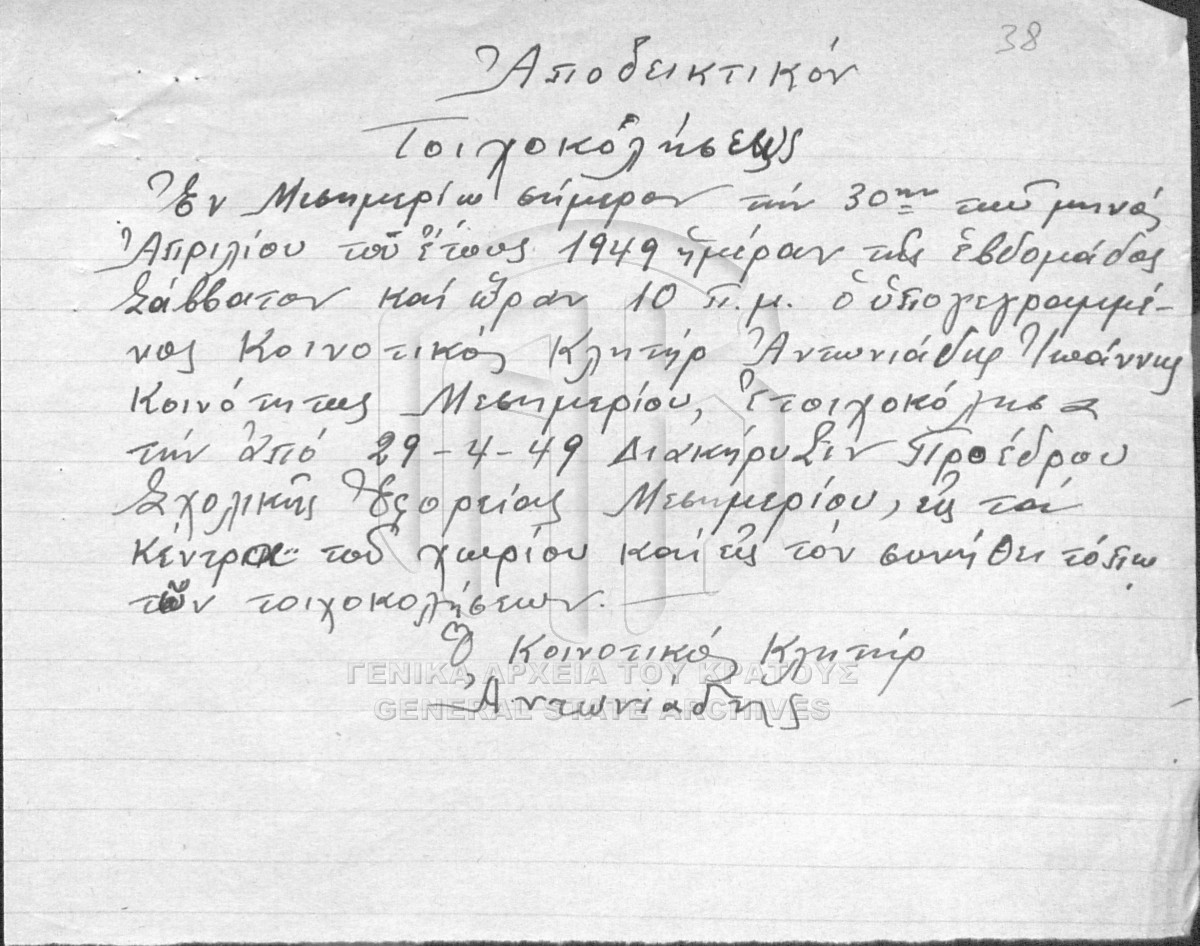 38
Ἀποδεικτικόν
Τοιχοκολήσεως
Ἐν Μεσημερίῳ σήμερον τήν 30ην τοῦ μηνός
Ἀπριλίου τοῦ ἔτους 1949 ἡμέραν τῆς ἑβδομάδος
Σάββατον καί ὥραν 10 π.μ. ὁ ὑπογεγραμμέ-
νος Κοινοτικός Κλητήρ Ἀντωνιάδης Ἰωάννης
Κοινότητος Μεσημερίου, ἐτοιχοκόλησα
τήν ἀπό 29-4-49 Διακήρυξιν Προέδρου
Σχολικῆς Ἐφορείας Μεσημερίου, εἰς τά
κέντρα τοῦ χωρίου καί εἰς τόν συνήθει τόπῳ
τῶν τοιχοκολήσεων.
Ὁ Κοινοτικός Κλητήρ
Ἀντωνιάδης
ΓΕΝΙΚΑ ΑΡΧΕΙΑ ΤΟΥ ΚΡΑΤΟΥΣ
GENERAL STATE ARCHIVES